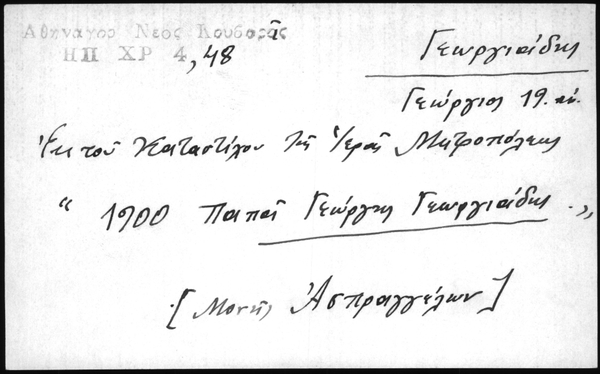 Αθηναγορ Νεος Κουβαρᾶς
ΗΠ ΧΡ 4,48
Γεωργιάδης
Γεώργιος 19. αἰ.
Ἐκ τοῦ Καταστίχου τῆς Ἱερᾶς Μητροπόλεως
“ 1900 Παπᾶ Γεώργης Γεωργιάδης .„
[Μονῆς Ἀσπραγγέλων]